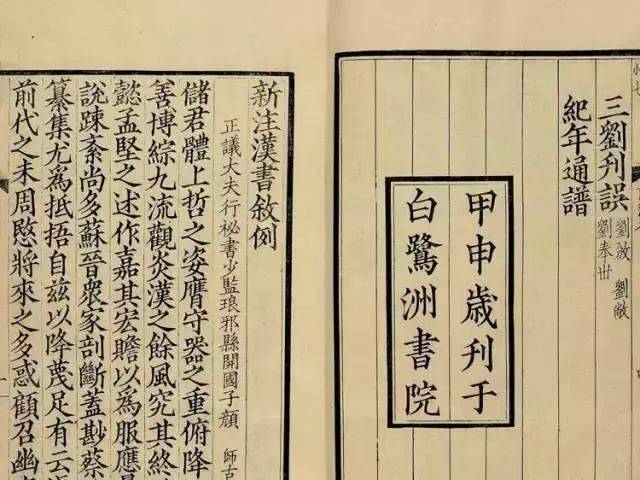 三劉刊誤
劉攽 劉敞
劉奉丗
紀年通譜
甲申歲刊于
白鷺洲書院
新注漢書敘例
正議大夫行秘書少監琅邪縣開國子顔 師古
儲君體上哲之姿膺守器之重俯降
善博綜九流觀炎漢之餘風究其終
懿孟堅之述作嘉其宏贍以爲服應
說踈紊尚多蘇晉衆家剖斷蓋尠蔡
纂集尤爲抵捂自兹以降蔑足有云
前代之未周愍將來之多惑顧召幽